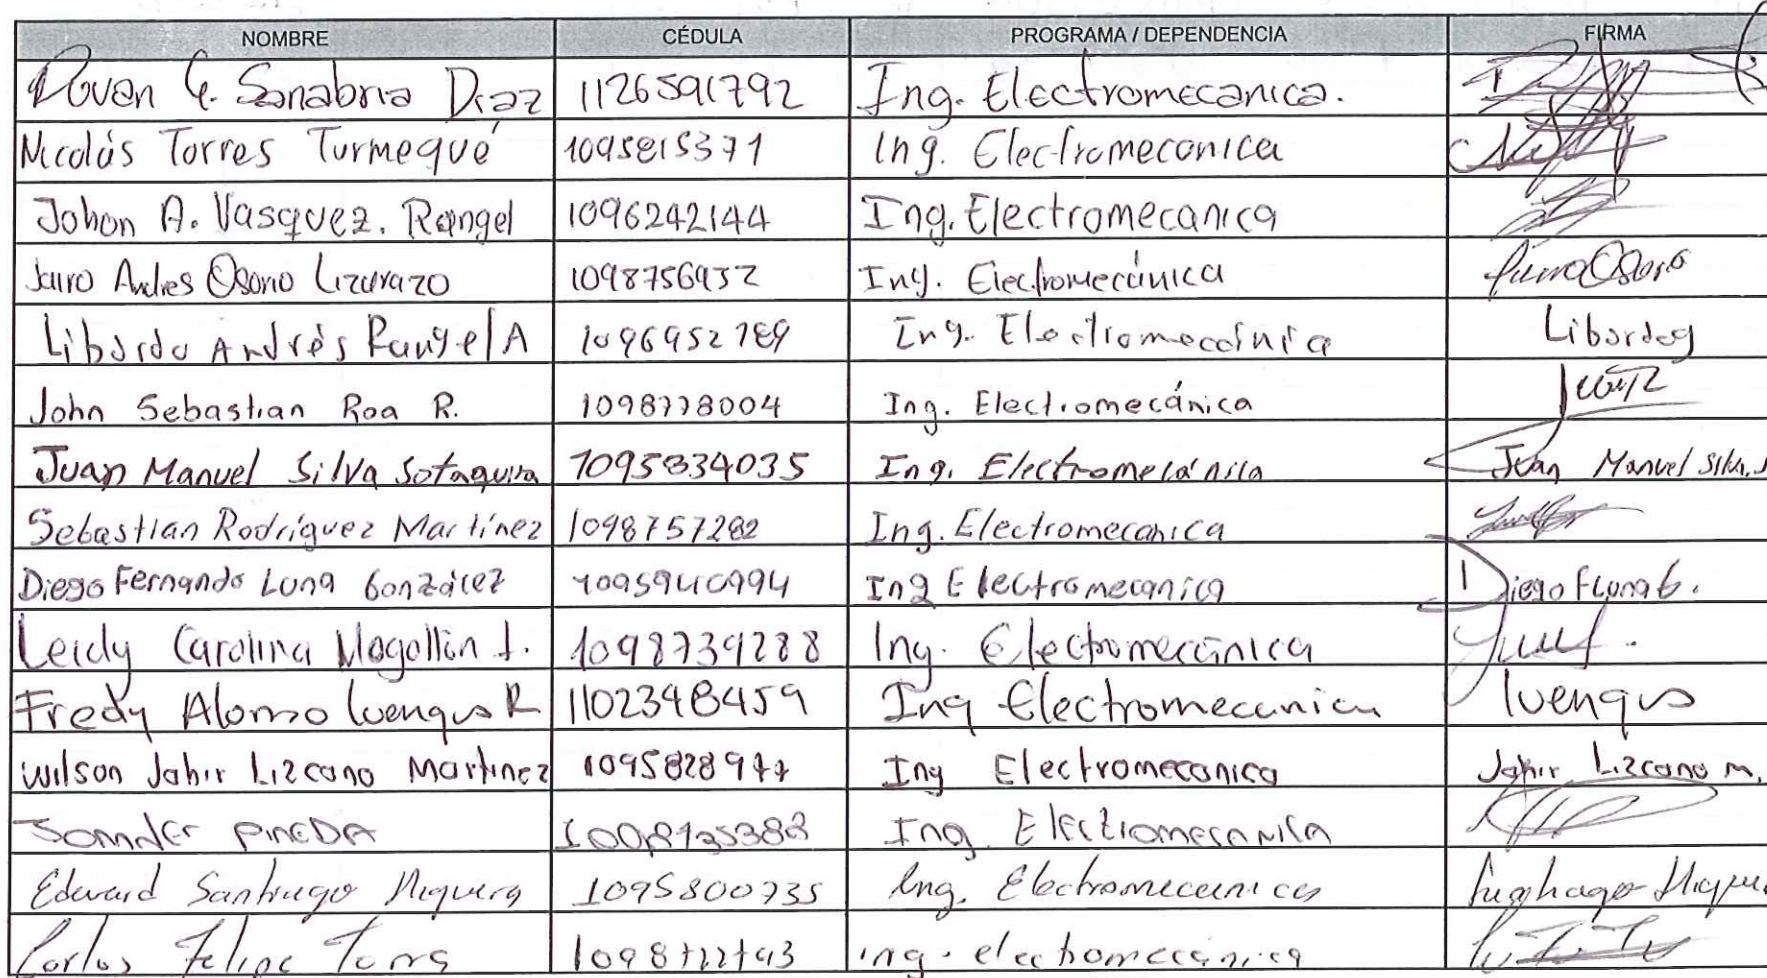 NOMBRE CÉDULA PROGRAMA / DEPENDENCIA FIRMA
Dovan G. Sanabria Diaz 1126591792 Ing. Electromecanica.
Nicolás Torres Turmequé 1095815371 Ing. Electromecanica
Johan A. Vasquez. Rangel 1096242144 Ing. Electromecanica
Jairo Andres Osorio Lizarazo 1098756932 Ing. Electromecánica Jairo Osorio
Libardo Andrés Rangel A 1096952789 Ing. Electromecánica Libardog
John Sebastian Roa R. 1098778004 Ing. Electromecánica
Juan Manuel Silva Sotaquira 1095834035 Ing. Electromecánica Juan Manuel Silva.S
Sebastian Rodríguez Martínez 1098757282 Ing. Electromecanica
Diego Fernando Luna González 1095940994 Ing Electromecanica Diego FLunaG.
Leidy Carolina Mogollón J. 1098739288 Ing. Electromecánica
Fredy Alonso luengus R 1102348459 Ing Electromecanica luengus
Wilson Jahir Lizcano Martinez 1095828977 Ing Electromecanica Jahir Lizcano M.
PINEDA Ing. Electromecanica
Edward Santiago Higuera 1095800735 Ing. Electromecanica Santiago Higuera
Carlos Felipe Torres Ing. electromecánica